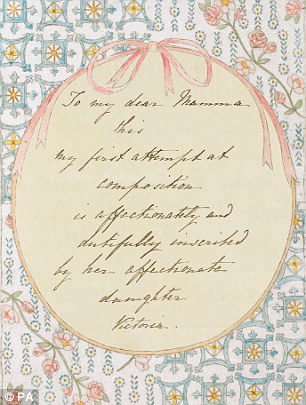 To my dear Mamma
this
my first attempt at
composition
is affectionately and
dutifully inscribed
by her affectionate
daughter
Victoria.
© PA